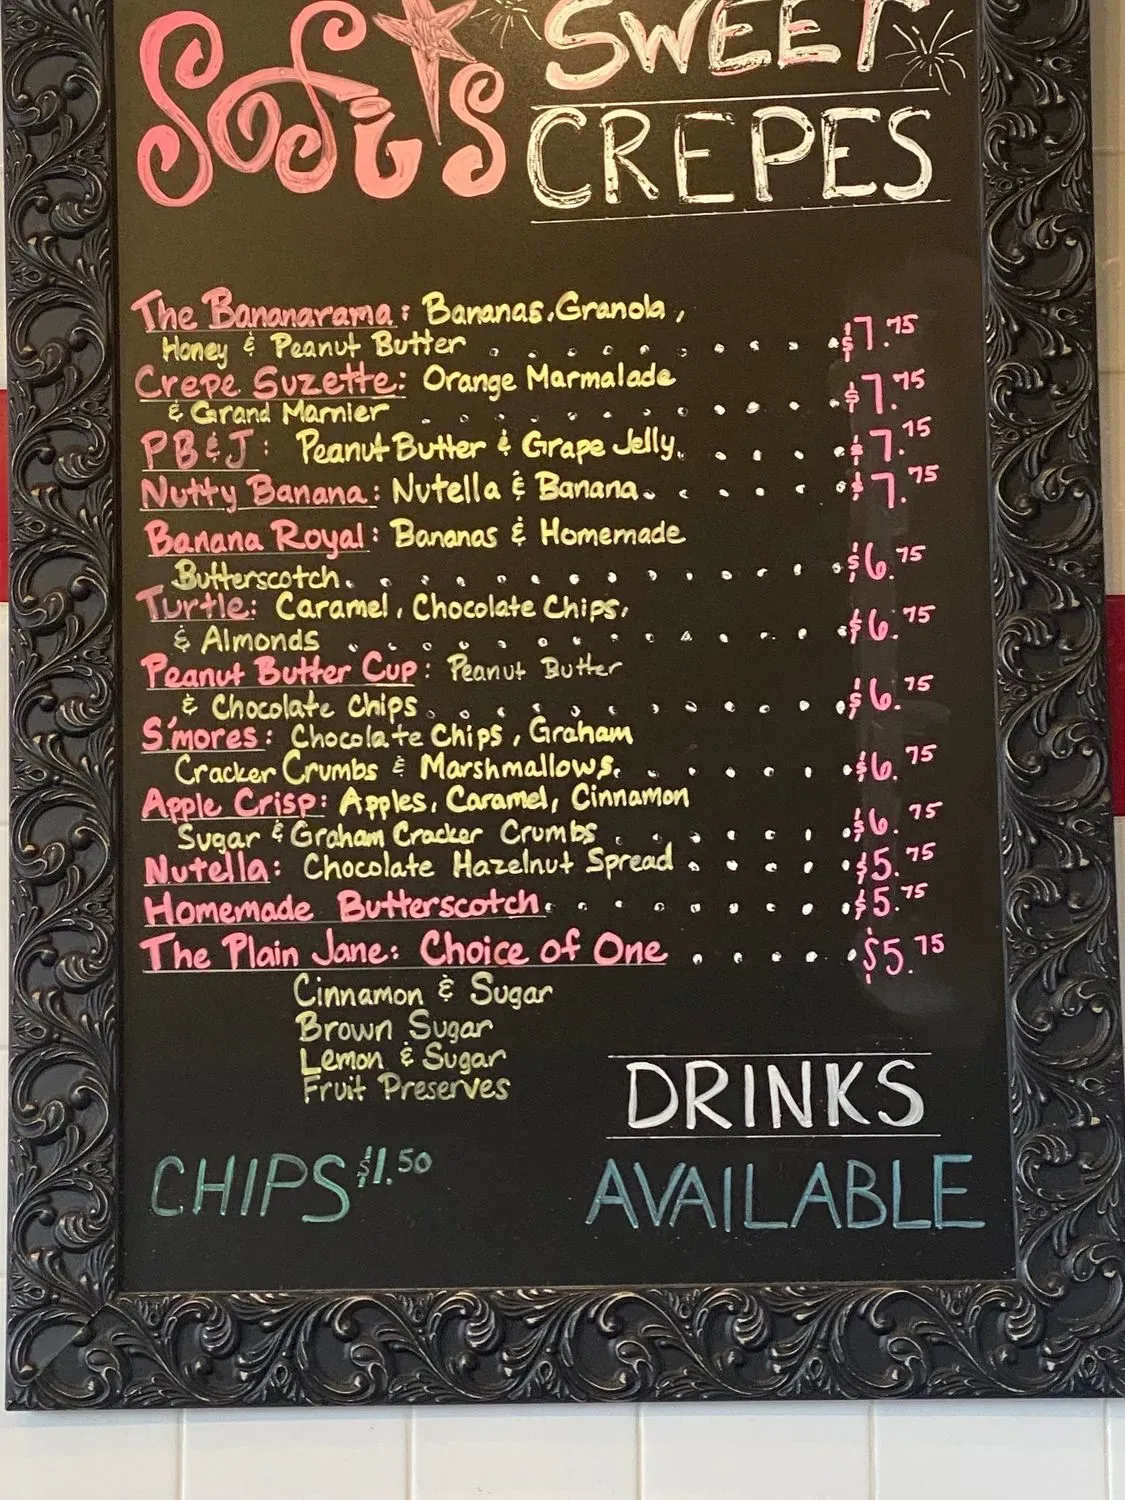 Sofi's
SWEET
CREPES
The Bananarama: Bananas, Granola,
Honey & Peanut Butter . . . . . . . . . $7.75
Crepe Suzette: Orange Marmalade
& Grand Marnier . . . . . . . . . . $7.75
PB&J: Peanut Butter & Grape Jelly. . . . . $7.75
Nutty Banana: Nutella & Banana. . . . . . $7.75
Banana Royal: Bananas & Homemade
Butterscotch. . . . . . . . . . . . . $6.75
Turtle: Caramel, Chocolate Chips,
& Almonds . . . . . . . . . . . . $6.75
Peanut Butter Cup: Peanut Butter
& Chocolate Chips . . . . . . . . . . $6.75
S'mores: Chocolate Chips, Graham
Cracker Crumbs & Marshmallows. . . . . . $6.75
Apple Crisp: Apples, Caramel, Cinnamon
Sugar & Graham Cracker Crumbs . . . . . . $6.75
Nutella: Chocolate Hazelnut Spread . . . . . $5.75
Homemade Butterscotch. . . . . . . . . $5.75
The Plain Jane: Choice of One . . . . . $5.75
Cinnamon & Sugar
Brown Sugar
Lemon & Sugar
Fruit Preserves
CHIPS $1.50
DRINKS
AVAILABLE